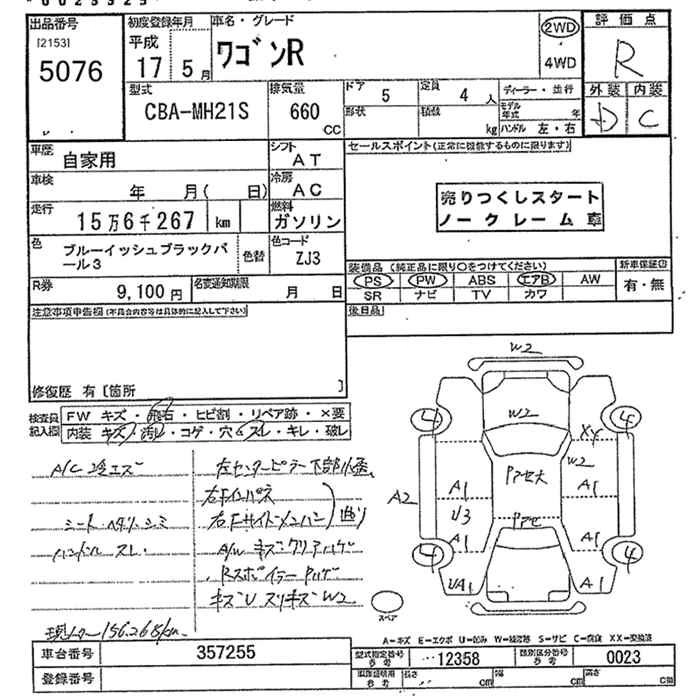 出品番号
[2153]
5076
初度登録年月
平成
17 5月
車名・グレード
ワゴンR
2WD
4WD
評価点
R
外装 内装
D C
型式
CBA-MH21S
排気量
660
CC
ドア
5
定員
4 人
形状
積数
kg
ディーラー・並行
モデル年式 年
ハンドル 左・右
車歴
自家用
シフト
AT
車検
年 月( 日)
冷房
AC
走行
15万6千267 km
燃料
ガソリン
色
ブルーイッシュブラックパール3
色替
色コード
ZJ3
R券
9,100円
名変通知期限
月 日
セールスポイント(正常に機能するものに限ります)
売りつくしスタート
ノークレーム車
装備品(純正品に限り○をつけてください)
PS PW ABS エアB AW
SR ナビ TV カワ
新車保証書
有・無
後日品
注意事項申告欄(不具合内容等は具体的に記入して下さい)
修復歴 有[箇所 ]
検査員記入欄
FW キズ・飛石・ヒビ割・リペア跡・×要
内装 キズ・汚レ・コゲ・穴・スレ・キレ・破レ
A/C 冷エズ
シート ヘタリ シミ
ハンドル スレ
左センターピラー下部小歪
右Fインパネ
右Fサイドメンバー
A/W キズ クリアハゲ
Rスポイラー Pハゲ
キズU スリキズW2
現メーター156,268km
W2
W2
4 4
XY
W2
A2 A1 A1
U3
A1 A1
4 4
UA1 A1
スペア
A-キズ E-エクボ U-凹み W-補修跡 S-サビ C-腐食 XX-交換済
車台番号
357255
型式指定番号 参考
12358
類別区分番号 参考
0023
登録番号
長さ cm
幅 cm
高さ cm